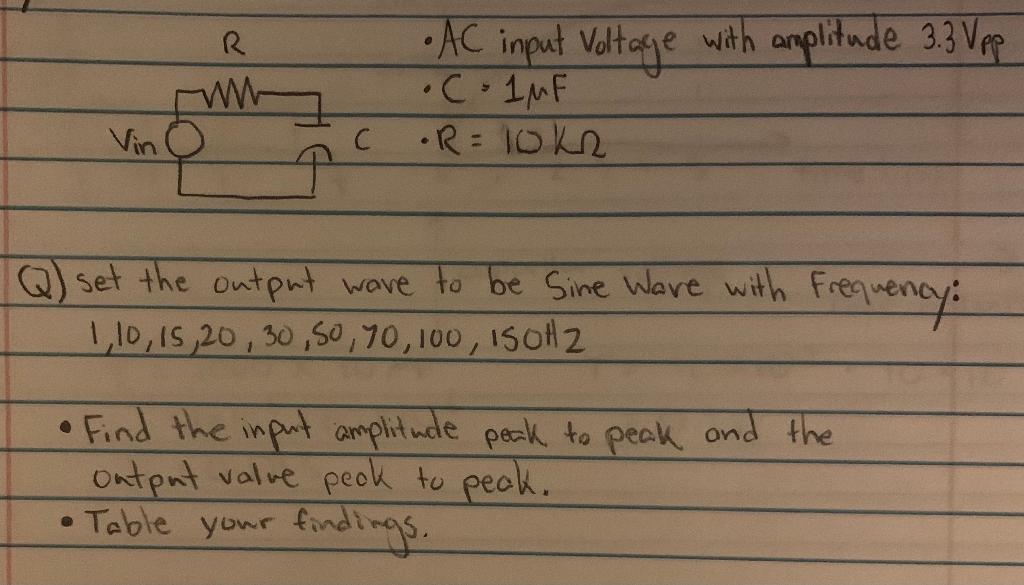 R
• AC input Voltage with amplitude 3.3 Vpp
• C = 1μF
Vin
C
• R = 10 kΩ
Q) set the output wave to be Sine Wave with Frequency:
1, 10, 15, 20, 30, 50, 70, 100, 150HZ
• Find the input amplitude peak to peak and the
output value peak to peak.
• Table your findings.